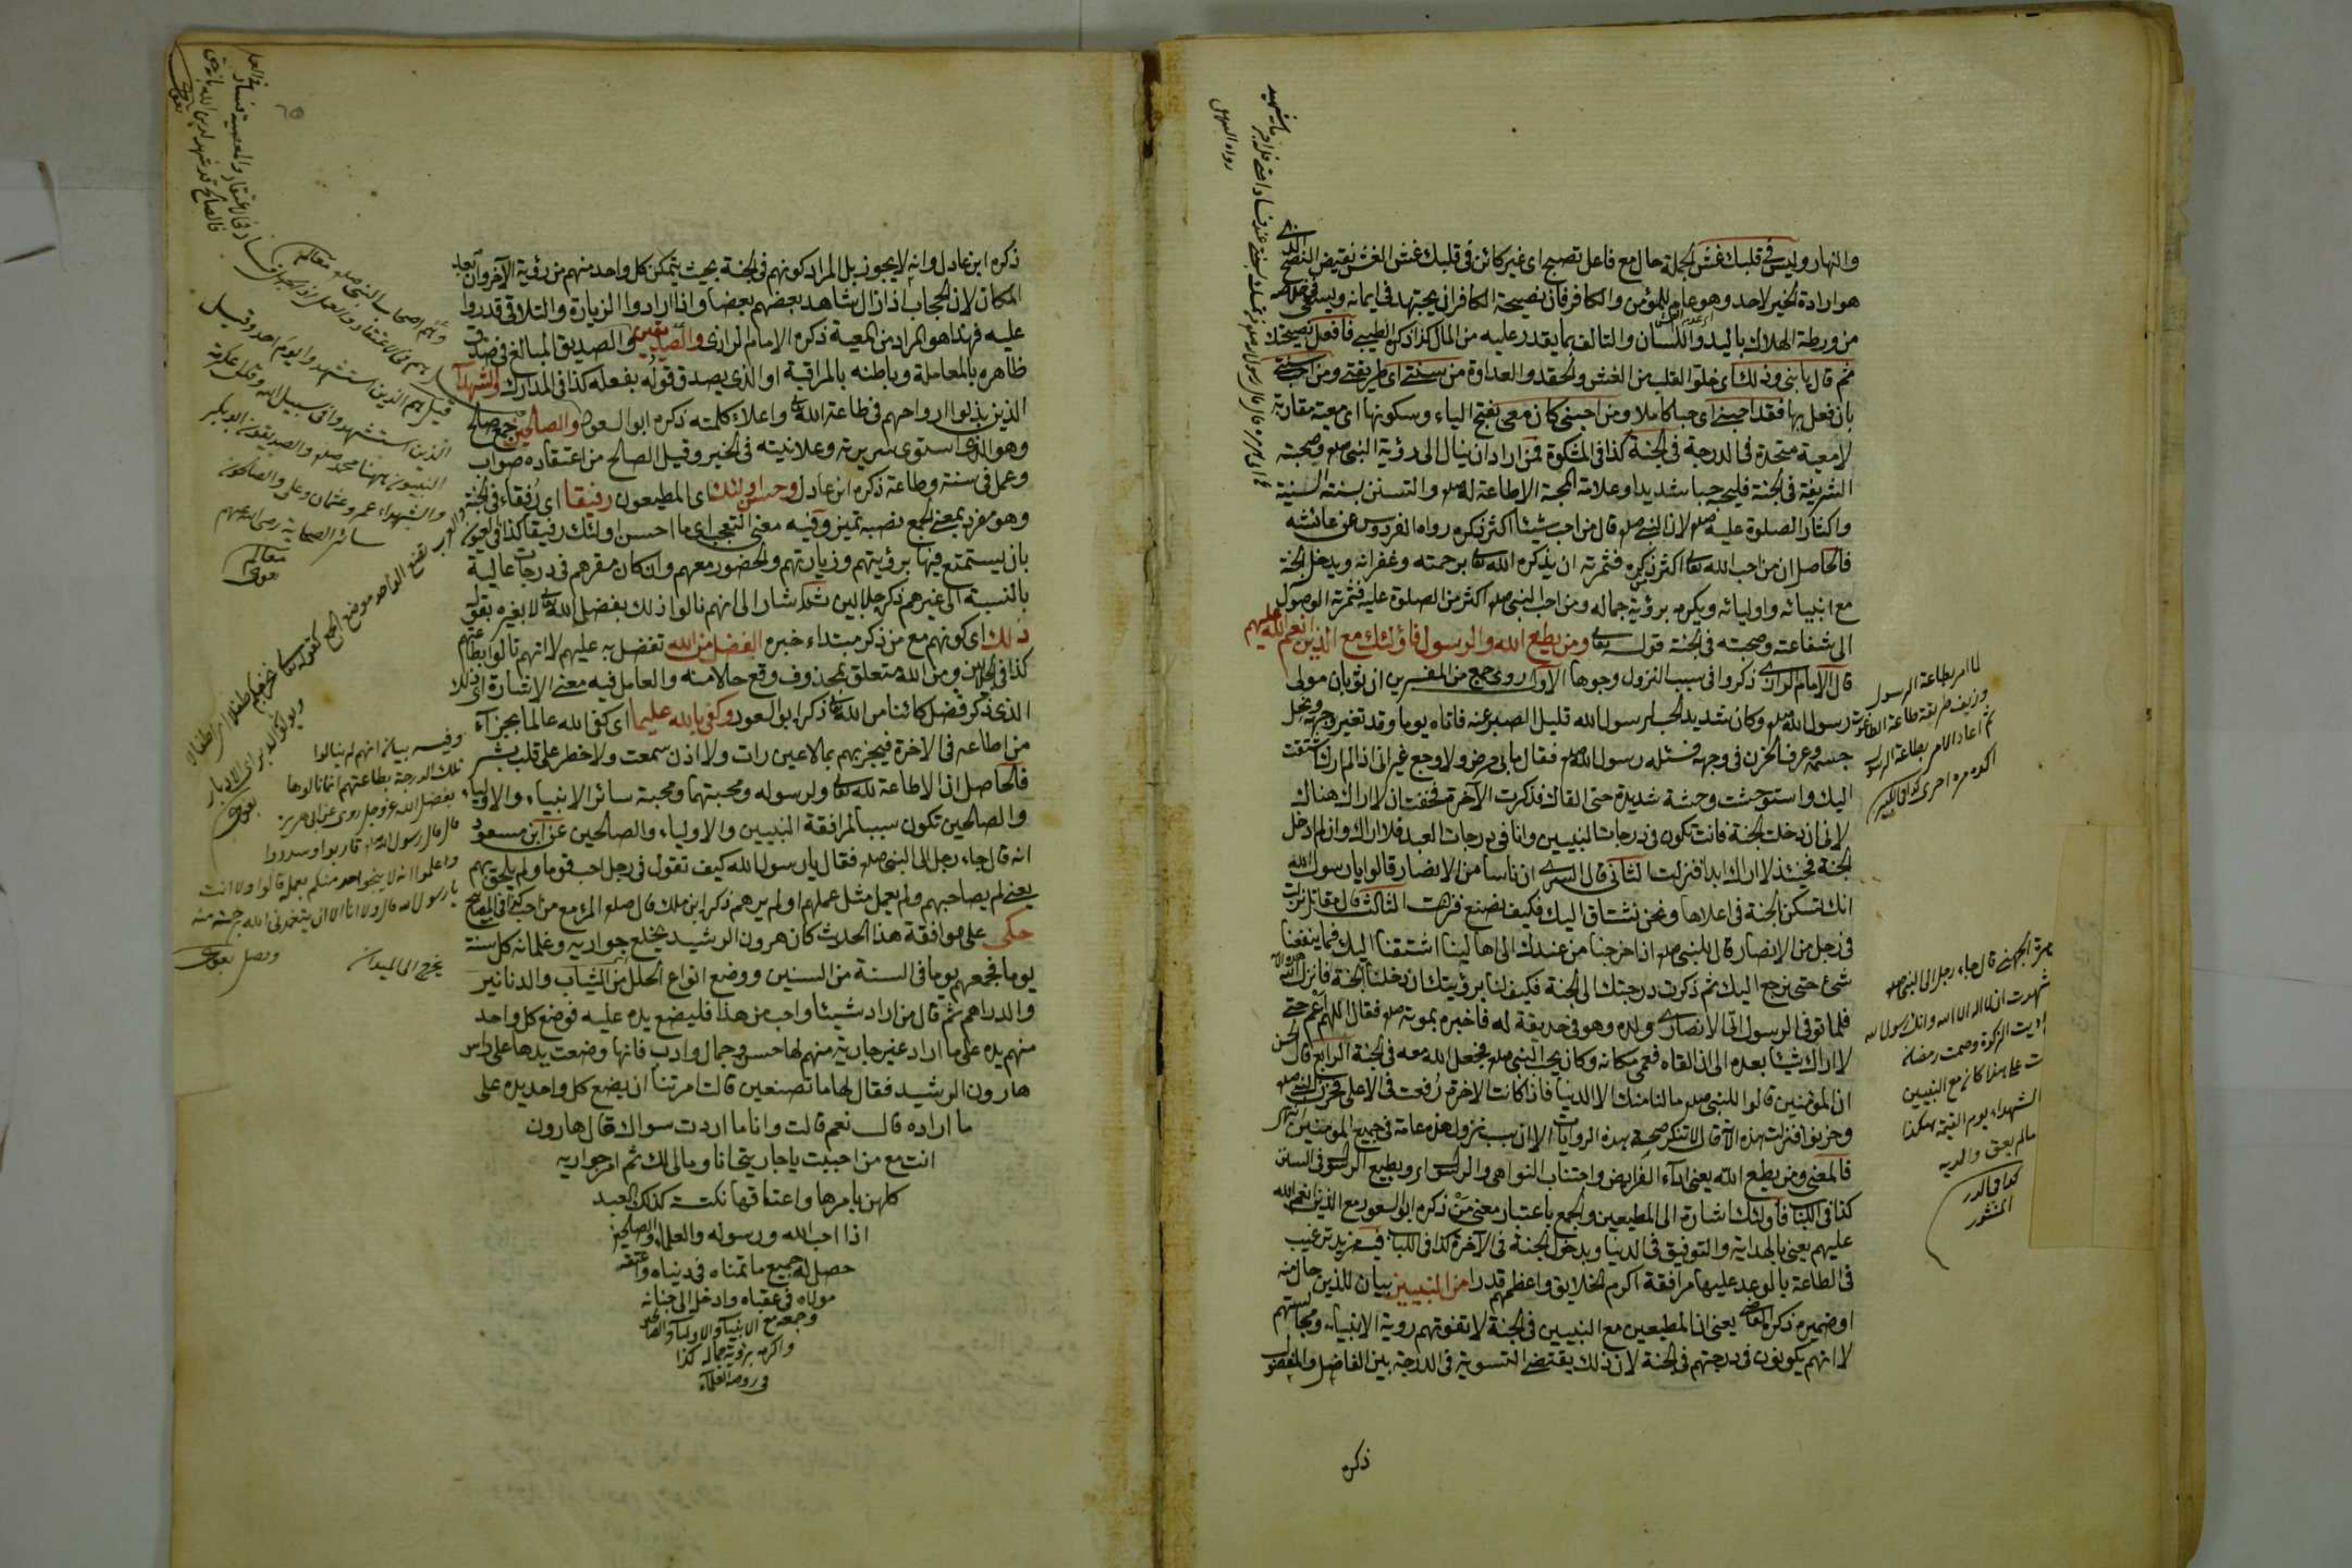 والنهار وليس في قلبك غش الجملة حال مع فاعل تصبح اى غير كائن في قلبك غش الغش نقيض النصح الذى
هو ارادة الخير لاحد وهو عام للمؤمن والكافر فان نصيحة الكافر ان يجتهد في ايمانه ويسعى في خلاصه
من ورطة الهلاك باليد واللسان والتالف بما يقدر عليه من المال كذا ذكره الطيبى فافعل نصيحتك
ثم قال يا بنى وذلك اى خلو القلب من الغش والحقد والعداوة من سنتى اى طريقتى ومن احب سنتى
بان فعل بها فقد احبنى اى حبا كاملا ومن احبنى كان معى بفتح الياء وسكونها اى معية مقاربة
لا معية متحدة في الدرجة في الجنة كذا في المشكوة فمن اراد ان ينال الى رؤية النبى صلعم وصحبته
الشريفة في الجنة فليحبه حبا شديدا وعلامة المحبة الاطاعة له صلعم والتسنن بسنته السنية
واكثار الصلوة عليه صلعم لان النبى صلعم قال من احب شيئا اكثر ذكره رواه الفردوس عن عائشه
فالحاصل ان من احب الله تعالى اكثر ذكره فثمرته ان يذكره الله تعالى برحمته وغفرانه ويدخل الجنة
مع انبيائه واوليائه ويكرمه برؤية جماله ومن احب النبى صلعم اكثر من الصلوة عليه فثمرته الوصول
الى شفاعته وصحبته في الجنة قوله تعالى ومن يطع الله والرسول فاولئك مع الذين انعم الله عليهم
قال الامام الرازى ذكروا في سبب النزول وجوها الاول روى جمع من المفسرين ان ثوبان مولى
رسول الله صلعم وكان شديد الحب لرسول الله قليل الصبر عنه فاتاه يوما وقد تغير وجهه ونحل
جسمه وعرف الحزن في وجهه فسئله رسول الله صلعم فقال ما بى مرض ولا وجع غير انى اذا لم ارك اشتقت
اليك واستوحشت وحشة شديدة حتى القاك فذكرت الآخرة فخفت ان لا اراك هناك
لانى ان دخلت الجنة فانت تكون في درجات النبيين وانا في درجات العبد فلا اراك وان لم ادخل
الجنة فحينئذ لا اراك ابدا فنزلت الثانى قال السدى ان ناسا من الانصار قالوا يا رسول الله
انك تسكن الجنة في اعلاها ونحن نشتاق اليك فكيف نصنع فنزلت الثالث قال مقاتل نزلت
في رجل من الانصار قال للنبى صلعم اذا خرجنا من عندك الى اهالينا اشتقنا اليك فما ينفعنا
شئ حتى نرجع اليك ثم ذكرت درجتك الى الجنة فكيف لنا برؤيتك ان دخلنا الجنة فانزل الله هذه الاية
فلما توفى الرسول اتى الانصارى ولده وهو في حديقة له فاخبره بموته صلعم فقال اللهم اعمنى حتى
لا ارى شيئا بعده الى ان القاه فعمى مكانه وكان يحب النبى صلعم فجعل الله معه في الجنة الرابع قال الحسن
ان المؤمنين قالوا للنبى صلعم مالنا منك الا الدنيا فاذا كانت الاخرة رفعت في الاعلى فحزن النبى صلعم
وحزنوا فنزلت هذه الآية قال لا تنكر صحة هذه الروايات الا ان سبب نزول هذه عامة في جميع المؤمنين
فالمعنى ومن يطع الله يعنى اداء الفرايض واجتناب النواهى والرسول اى ويطيع الرسول في السنن
كذا في اللباب فاولئك اشارة الى المطيعين والجمع باعتبار معنى من ذكره ابو السعود مع الذين انعم الله
عليهم يعنى بالهداية والتوفيق في الدنيا وبدخول الجنة في الآخرة كذا في اللباب فيه مزيد ترغيب
في الطاعة بالوعد عليها مرافقة اكرم الخلايق واعظمهم قدرا من النبيين بيان للذين حال منه
او ضميره ذكره القاضى يعنى ان المطيعين مع النبيين في الجنة لا تفوتهم روية الانبياء ومجالستهم
لا انهم يكونون في درجتهم في الجنة لان ذلك يقتضى التسوية في الدرجة بين الفاضل والمفضول
ذكره
لما امر بطاعة الرسول
وزيف طريقة طاعة الطاغوت
ثم اعاد الامر بطاعة الرسول
اكده مرة اخرى كذا في الكبير
مرة الجهنى قال جاء رجل الى النبى صلعم
شهدت ان لا اله الا الله وانك رسول الله
اديت الزكوة وصمت رمضان
ت على هذا كان مع النبيين
الشهداء يوم القيمة هكذا
مالم يعق والديه
كذا في الدر
المنثور
ذكره ابن عادل وانه لا يجوز بل المراد كونهم في الجنة بحيث يتمكن كل واحد منهم من رؤية الآخر وان بعد
المكان لان الحجاب اذا زال يشاهد بعضهم بعضا واذا ارادوا الزيارة والتلاقى قدروا
عليه فهذا هو المراد من المعية ذكره الامام الرازى والصديقين والصديق المبالغ في صدق
ظاهره بالمعاملة وباطنه بالمراقبة او الذى يصدق قوله بفعله كذا في المدارك والشهداء
الذين بذلوا ارواحهم في طاعة الله تعالى واعلاء كلمته ذكره ابو السعود والصالحين جمع صالح
وهو الذى استوى سريرته وعلانيته في الخير وقيل الصالح من اعتقاده صواب
وعمل في سنته وطاعة ذكره ابن عادل وحسن اولئك اى المطيعون رفيقا اى رفقاء في الجنة
وهو مفرد بمعنى الجمع نصبه تميز وفيه معنى التعجب اى ما احسن اولئك رفيقا كذا في العيون
بان يستمتع فيها برؤيتهم وزيارتهم والحضور معهم وان كان مقرهم في درجات عالية
بالنسبة الى غيرهم ذكره جلالين ثم اشار الى انهم نالوا ذلك بفضل الله تعالى لا بغيره بقوله
ذلك اى كونهم مع من ذكر مبتداء خبره الفضل من الله تفضل به عليهم لا انهم نالوا بطاعتهم
كذا في الجلالين ومن الله متعلق بمحذوف وقع حالا منه والعامل فيه معنى الاشارة اى ذلك
الذى ذكر فضل كائنا من الله تعالى ذكره ابو السعود وكفى بالله عليما اى كفى الله عالما بجزاء
من اطاعه في الاخرة فيجزيهم بما لا عين رات ولا اذن سمعت ولا خطر على قلب بشر
فالحاصل ان الاطاعة لله تعالى ولرسوله ومحبتهما ومحبة سائر الانبياء والاولياء
والصالحين تكون سببا لمرافقة النبيين والاولياء والصالحين عن ابن مسعود
انه قال جاء رجل الى النبى صلعم فقال يا رسول الله كيف تقول في رجل احب قوما ولم يلحق بهم
يعنى لم يصاحبهم ولم يعمل مثل عملهم او لم يرهم ذكر ابن ملك قال صلعم المرء مع من احب كذا في المصابيح
حكى على موافقة هذا الحديث كان هرون الرشيد يخلع جواريه وغلمانه كل سنة
يوما فجمعهم يوما في السنة من السنين ووضع انواع الحلل من الثياب والدنانير
والدراهم ثم قال من اراد شيئا واحب من هذا فليضع يده عليه فوضع كل واحد
منهم يده على ما اراد غير جارية منهم لها حسن وجمال وادب فانها وضعت يدها على راس
هارون الرشيد فقال لها ما تصنعين قالت امرتنا ان يضع كل واحد يده على
ما اراده قال نعم قالت وانا ما اردت سواك فقال هارون
انت مع من احببت يا جاريتى انا ومالى لك ثم امر جواريه
كلهن بامرها واعتاقها نكتت كذلك العبد
اذا احب الله ورسوله والعلماء والصالحين
حصل له جميع ما تمناه في دنياه واعتقه
مولاه في عقباه وادخل الى جنانه
وجمعه مع الانبياء والاولياء والصالحين
واكرمه برؤية جماله كذا
في روضة العلماء
وهم اصحاب النبى صلعم معالم
قيل هم الذين استشهدوا يوم احد وقيل
الذين استشهدوا في سبيل الله وقال عكرمة
النبيون ههنا محمد صلعم والصديقون ابو بكر
والشهداء عمر وعثمان وعلى والصالحون
سائر الصحابة رضى الله عنهم
معالم
وفيه بيان انهم لم ينالوا
تلك الدرجة بطاعتهم انما نالوها
بفضل الله عز وجل روى عن ابى هريرة
قال قال رسول الله صلعم قاربوا وسددوا
واعلموا انه لا ينجو احد منكم بعمله قالوا ولا انت
يا رسول الله قال ولا انا الا ان يتغمدنى الله برحمة منه
وفضل بغوى
يخرج الى الميدان